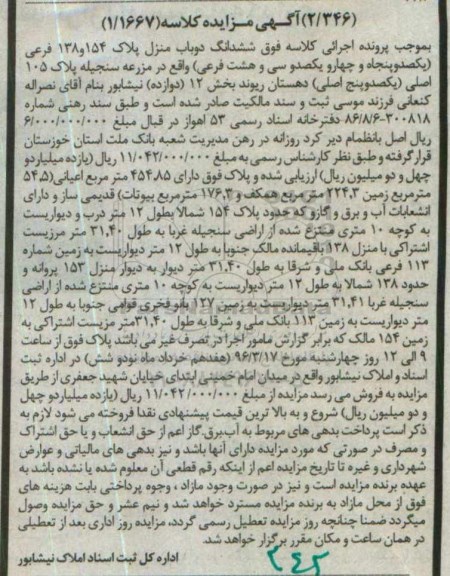 (۲/۳۴۶)آگهی مزایده کلاسه(۱/۱۶۶۷)
بموجب پرونده اجرائی کلاسه فوق ششدانگ دوباب منزل پلاک ۱۵۴و۱۳۸ فرعی
(یکصدوپنجاه و چهارو یکصدو سی و هشت فرعی) واقع در مزرعه سنجیله پلاک ۱۰۵
اصلی (یکصدوپنج اصلی) دهستان ریوند بخش ۱۲ (دوازده) نیشابور بنام آقای نصراله
کنعانی فرزند موسی ثبت و سند مالکیت صادر شده است و طبق سند رهنی شماره
۸۶/۸/۶-۳۰۰۸۱۸ دفترخانه اسناد رسمی ۵۳ اهواز در قبال مبلغ ۶/۰۰۰/۰۰۰/۰۰۰
ریال اصل بانظمام دیر کرد روزانه در رهن مدیریت شعبه بانک ملت استان خوزستان
قرارگرفته و طبق نظر کارشناس رسمی به مبلغ ۱۱/۰۴۲/۰۰۰/۰۰۰ ریال (یازده میلیاردو
چهل و دو میلیون ریال) ارزیابی شده و پلاک فوق دارای ۴۵۴,۸۵ متر مربع اعیانی(۵۴,۵
مترمربع زمین ۲۲۴,۳ متر مربع همکف و ۱۷۶,۳ مترمربع بیوتات) قدیمی ساز و دارای
انشعابات آب و برق و گازو که حدود پلاک ۱۵۴ شمالا بطول ۱۲ متر درب و دیواریست
به کوچه ۱۰ متری منتزع شده از اراضی سنجیله غربا به طول ۳۱,۴۰ متر مرزیست
اشتراکی با منزل ۱۳۸ باقیمانده مالک جنوبا به طول ۱۲ متر دیواریست به زمین شماره
۱۱۳ فرعی بانک ملی و شرقا به طول ۳۱,۴۰ متر دیوار به دیوار منزل ۱۵۳ پروانه و
حدود ۱۳۸ شمالا به طول ۱۲ متر دیواریست به کوچه ۱۰ متری منتزع شده از اراضی
سنجیله غربا ۳۱,۴۱ متر دیواریست به زمین ۱۲۷ بانو فخری قوامی جنوبا به طول ۱۲
متر دیواریست به زمین ۱۱۳ بانک ملی و شرقا به طول ۳۱,۴۰متر مزیست اشتراکی به
زمین ۱۵۴ مالک که برابر گزارش مامور اجرا در تصرف غیر می باشد پلاک فوق از ساعت
۹ الی ۱۲ روز چهارشنبه مورخ ۹۶/۳/۱۷ (هفدهم خرداد ماه نودو شش) در اداره ثبت
اسناد و املاک نیشابور واقع در میدان امام خمینی ابتدای خیابان شهید جعفری از طریق
مزایده به فروش می رسد مزایده از مبلغ ۱۱/۰۴۲/۰۰۰/۰۰۰ ریال (یازده میلیاردو چهل
و دو میلیون ریال) شروع و به بالا ترین قیمت پیشنهادی نقدا فروخته می شود لازم به
ذکر است پرداخت بدهی های مربوط به آب،برق،گاز اعم از حق انشعاب و یا حق اشتراک
و مصرف در صورتی که مورد مزایده دارای آنها باشد و نیز بدهی های مالیاتی و عوارض
شهرداری و غیره تا تاریخ مزایده اعم از اینکه رقم قطعی آن معلوم شده یا نشده باشد به
عهده برنده مزایده است و نیز در صورت وجود مازاد ، وجوه پرداختی بابت هزینه های
فوق از محل مازاد به برنده مزایده مسترد خواهد شد و نیم عشر و حق مزایده وصول
میگردد ضمنا چنانچه روز مزایده تعطیل رسمی گردد، مزایده روز اداری بعد از تعطیلی
در همان ساعت و مکان مقرر برگزار خواهد شد.
اداره کل ثبت اسناد املاک نیشابور